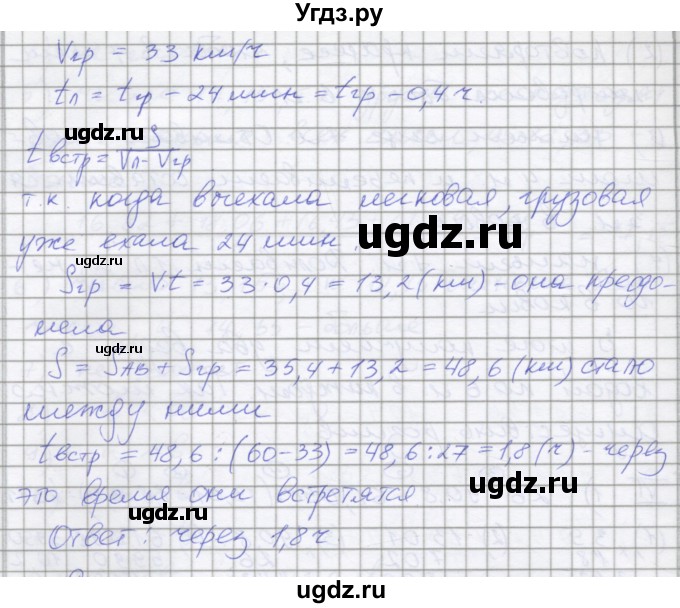 Угдз.ру
Vгр = 33 км/ч
tл = tгр − 24 мин = tгр − 0,4 ч.
ugdz.ru
tвстр = S / (Vл − Vгр)
ugdz.ru
т.к. когда выехала легковая, грузовая
уже ехала 24 мин.
ugdz.ru
ugdz.ru
Sгр = V·t = 33·0,4 = 13,2 (км) - она преодо-
лела
ugdz.ru
ugdz.ru
S = SAB + Sгр = 35,4 + 13,2 = 48,6 (км) стало
между ними
tвстр = 48,6 : (60−33) = 48,6 : 27 = 1,8 (ч) - через
это время они встретятся
ugdz.ru
ugdz.ru
Ответ: через 1,8 ч.
ugdz.ru